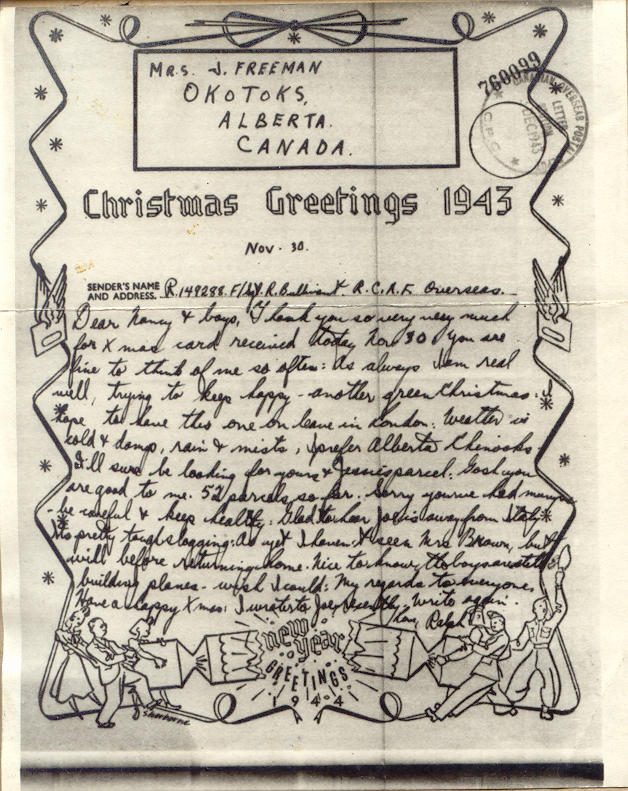 MRS. J. FREEMAN
OKOTOKS,
ALBERTA.
CANADA.
760099
CANADIAN OVERSEAS POSTAL
LETTER
DEC 1943
C.P.C.
Christmas Greetings 1943
Nov. 30.
SENDER'S NAME AND ADDRESS. R.149288. F/Sgt. R. Bullivant. R.C.A.F. Overseas.
Dear Nancy & boys, Thank you so very very much
for Xmas card received today Nov 30 You are
fine to think of me so often: As always I am real
well, trying to keep happy - another green Christmas: I
hope to have this one on leave in London. Weather is
cold & damp, rain & mists, I prefer Alberta Chinooks
I'll sure be looking for yours & Jessies parcel. Gosh you
are good to me. 52 parcels so far. Sorry youve had mumps
- be careful & keep healthy. Glad to hear Joe is away from Italy
Its pretty tough slogging. As yet I haven't seen Mrs Brown, but
will before returning home. Nice to know the boys are still
building planes - wish I could: My regards to everyone,
Have a happy Xmas: I wrote to Joe recently. Write again.
Ralph
new year
GREETINGS
1944